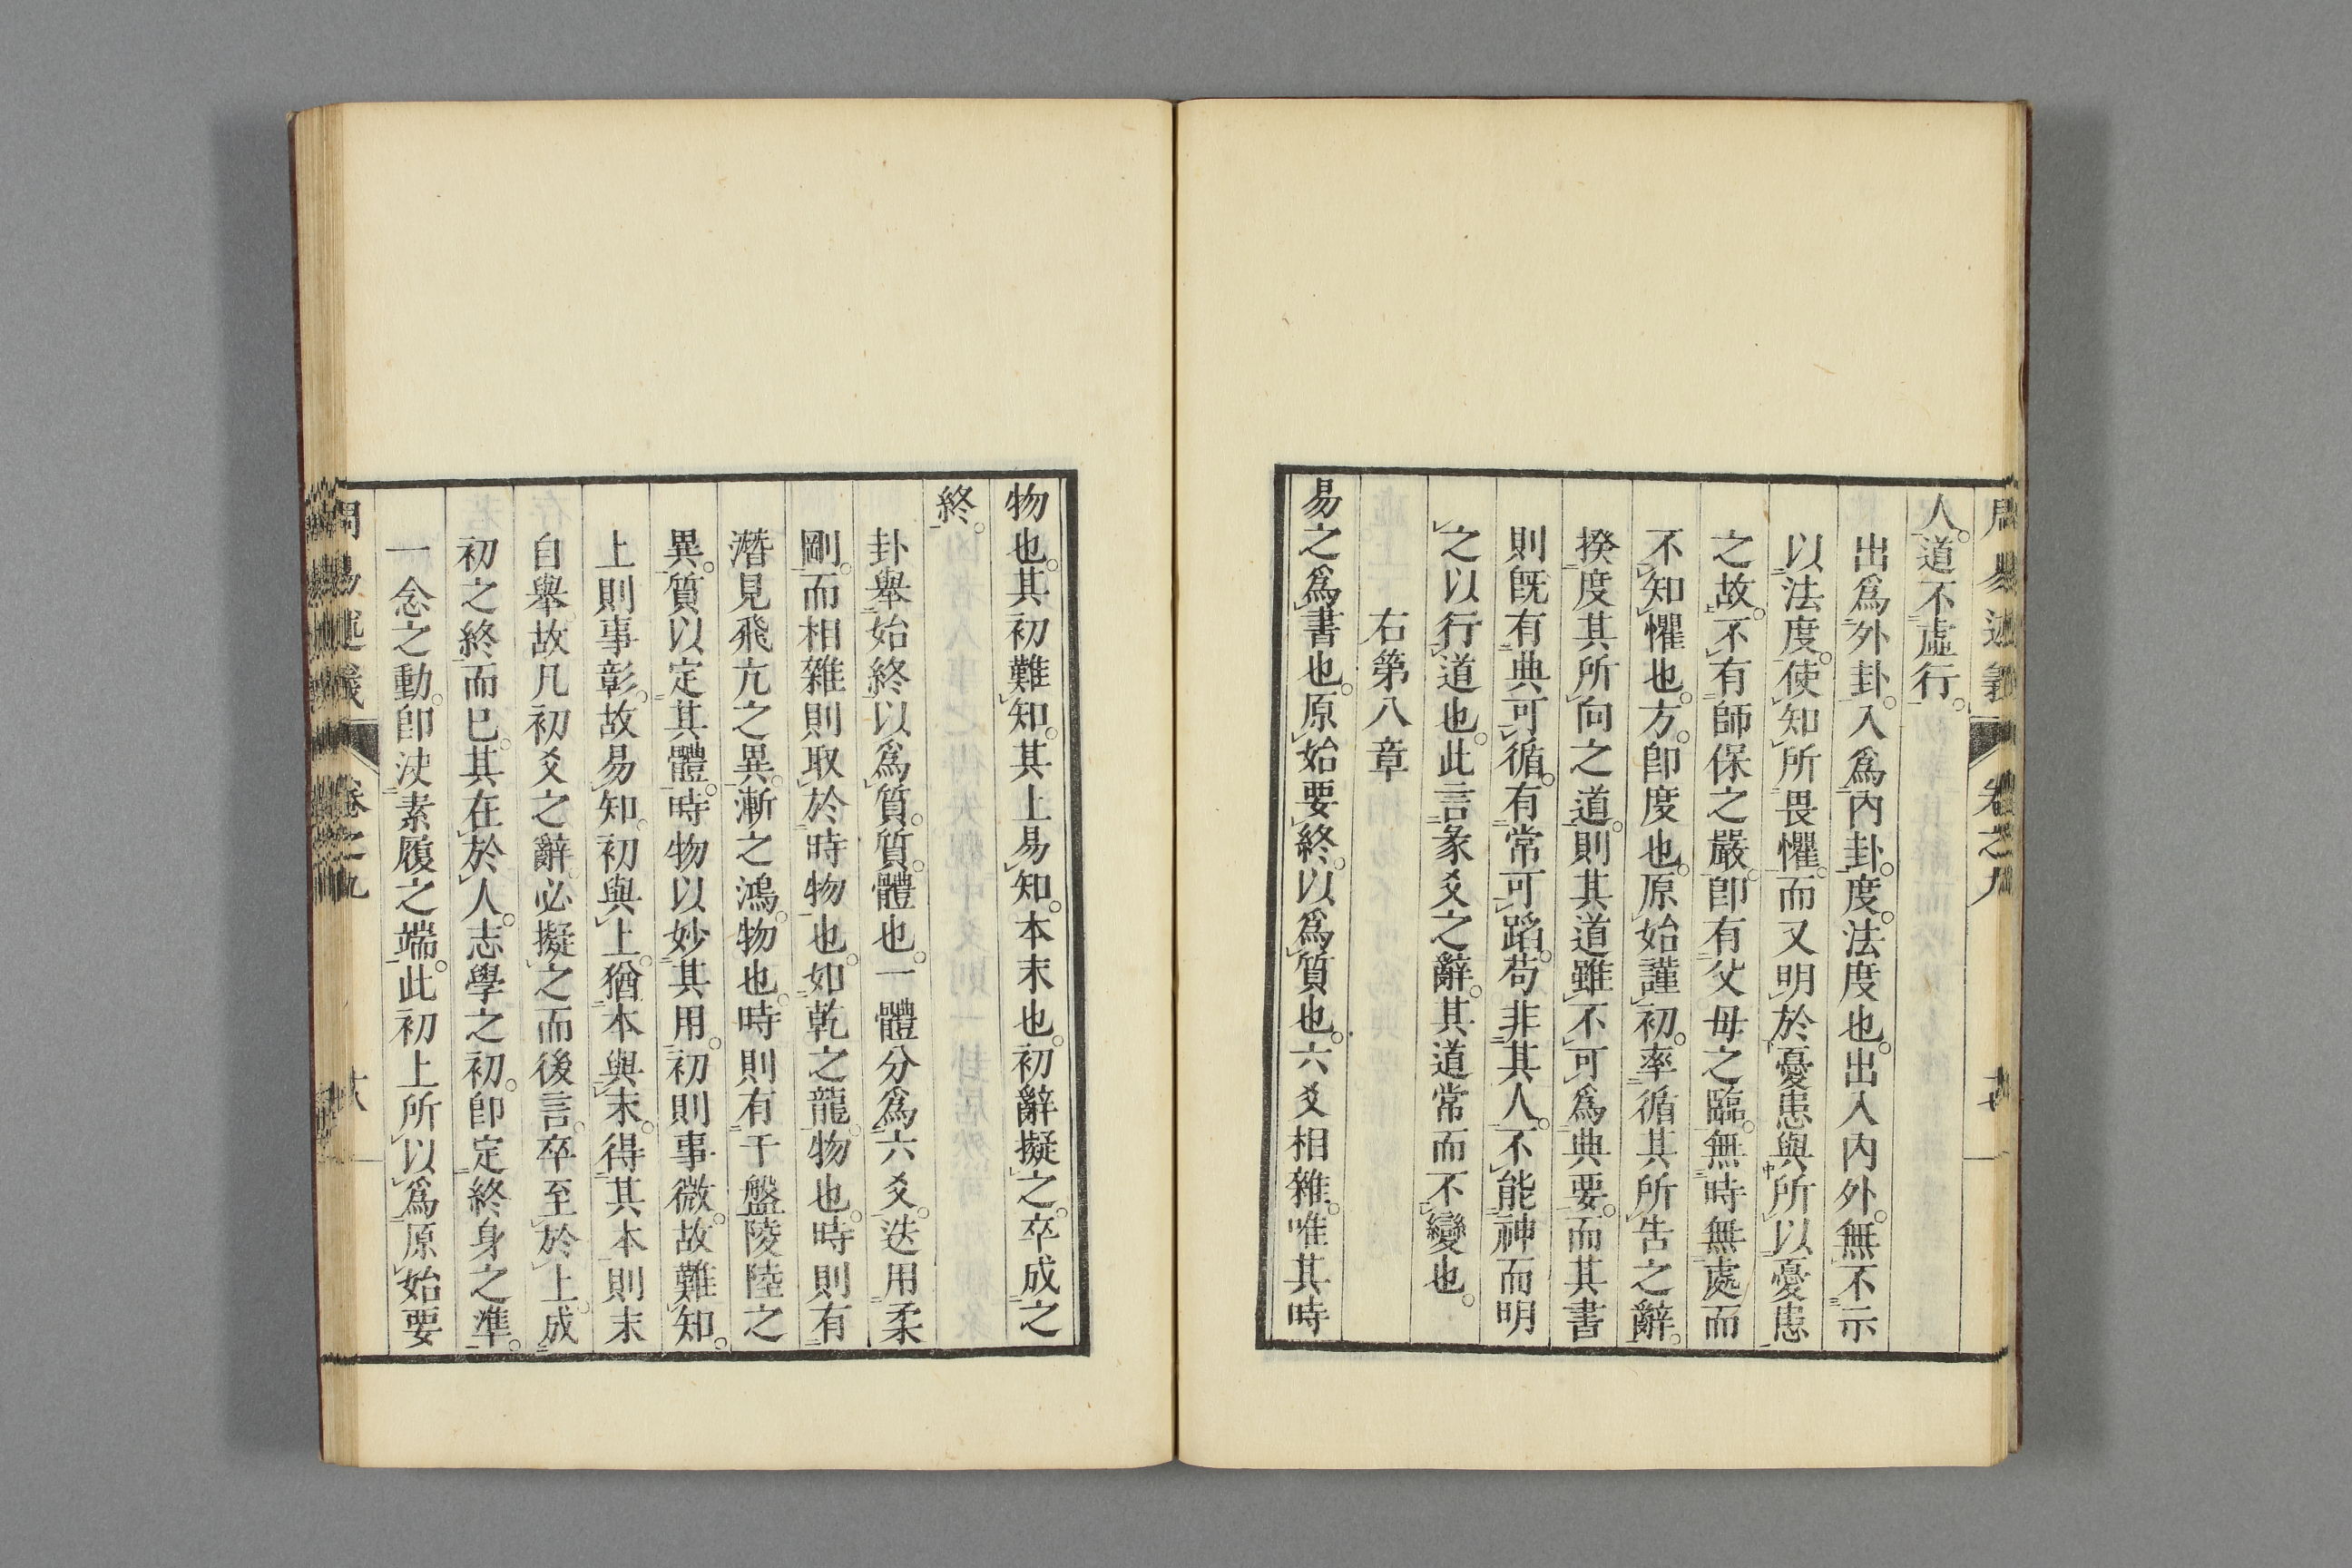 周易述義 卷之九
人。道不虛行。
出爲外卦。入爲內卦。度。法度也。出入內外。無不示
以法度。使知所畏懼。而又明於憂患與所以憂患
之故。不有師保之嚴。卽有父母之臨。無時無處而
不知懼也。方。卽度也。原始謹初。率循其所告之辭。
揆度其所向之道。則其道雖不可爲典要。而其書
則旣有典可循。有常可蹈。苟非其人。不能神而明
之以行道也。此言彖爻之辭。其道常而不變也。
右第八章
易之爲書也。原始要終。以爲質也。六爻相雜。唯其時
物也。其初難知。其上易知。本末也。初辭擬之。卒成之
終。
卦舉始終以爲質。質。體也。一體分爲六爻。迭用柔
剛。而相雜則取於時物也。如乾之龍。物也。時則有
潛見飛亢之異。漸之鴻。物也。時則有干盤陵陸之
異。質以定其體。時物以妙其用。初則事微。故難知。
上則事彰。故易知。初與上。猶本與末。得其本則末
自舉。故凡初爻之辭。必擬之而後言。卒至於上。成
初之終而已。其在於人。志學之初。卽定終身之準。
一念之動。卽決素履之端。此初上所以爲原始要
周易述義 卷之九